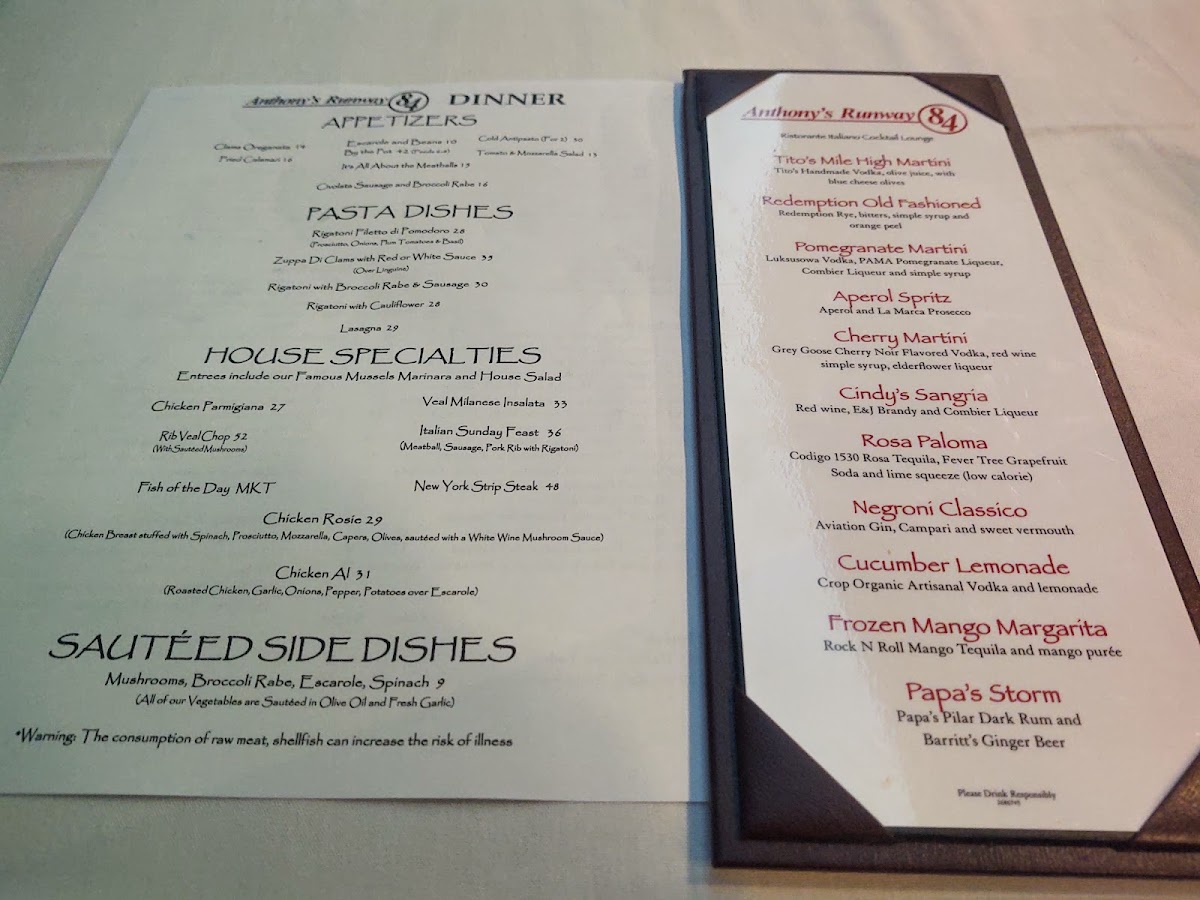 Anthony's Runway 84 DINNER
APPETIZERS
Clams Oreganata 14
Fried Calamari 16
Escarole and Beans 10
By the Pot 42
Cold Antipasto (For 2) 30
Tomato & Mozzarella Salad 13
It's All About the Meatballs 15
Cuolata Sausage and Broccoli Rabe 16
PASTA DISHES
Rigatoni Filetto di Pomodoro 28
(Prosciutto, Onions, Plum Tomatoes & Basil)
Zuppa Di Clams with Red or White Sauce 35
(Over Linguine)
Rigatoni with Broccoli Rabe & Sausage 30
Rigatoni with Cauliflower 28
Lasagna 29
HOUSE SPECIALTIES
Entrees include our Famous Mussels Marinara and House Salad
Chicken Parmigiana 27
Veal Milanese Insalata 33
Rib Veal Chop 52
(With Sautéed Mushrooms)
Italian Sunday Feast 36
(Meatball, Sausage, Pork Rib with Rigatoni)
Fish of the Day MKT
New York Strip Steak 48
Chicken Rosie 29
(Chicken Breast stuffed with Spinach, Prosciutto, Mozzarella, Capers, Olives, sautéed with a White Wine Mushroom Sauce)
Chicken Al 31
(Roasted Chicken, Garlic, Onions, Pepper, Potatoes over Escarole)
SAUTÉED SIDE DISHES
Mushrooms, Broccoli Rabe, Escarole, Spinach 9
(All of our Vegetables are Sautéed in Olive Oil and Fresh Garlic)
*Warning: The consumption of raw meat, shellfish can increase the risk of illness
Anthony's Runway 84
Ristorante Italiano Cocktail Lounge
Tito's Mile High Martini
Tito's Handmade Vodka, olive juice, with
blue cheese olives
Redemption Old Fashioned
Redemption Rye, bitters, simple syrup and
orange peel
Pomegranate Martini
Luksusowa Vodka, PAMA Pomegranate Liqueur,
Combier Liqueur and simple syrup
Aperol Spritz
Aperol and La Marca Prosecco
Cherry Martini
Grey Goose Cherry Noir Flavored Vodka, red wine
simple syrup, elderflower liqueur
Cindy's Sangria
Red wine, E&J Brandy and Combier Liqueur
Rosa Paloma
Codigo 1530 Rosa Tequila, Fever Tree Grapefruit
Soda and lime squeeze (low calorie)
Negroni Classico
Aviation Gin, Campari and sweet vermouth
Cucumber Lemonade
Crop Organic Artisanal Vodka and lemonade
Frozen Mango Margarita
Rock N Roll Mango Tequila and mango purée
Papa's Storm
Papa's Pilar Dark Rum and
Barritt's Ginger Beer
Please Drink Responsibly